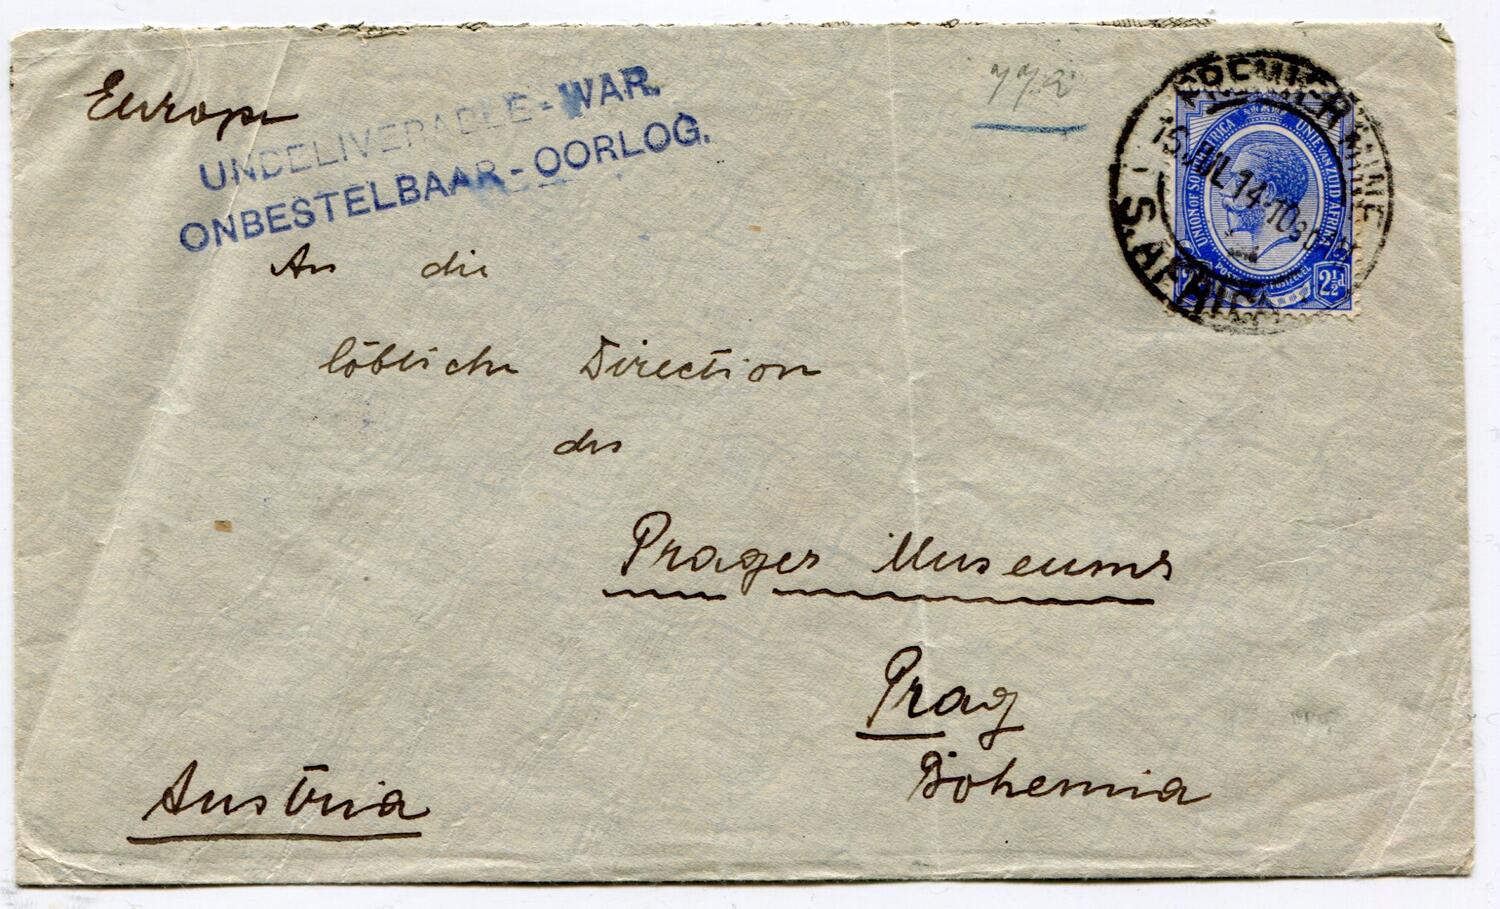 Europe
UNDELIVERABLE - WAR.
ONBESTELBAAR - OORLOG.
PREMIER MINE
15 JUL 14 · 10 30
S. AFRICA
UNION OF SOUTH AFRICA UNIE VAN ZUID AFRIKA
POSTZEGEL
2½d
An die
löbliche Direction
des
Prager Museums
Prag
Bohemia
Austria